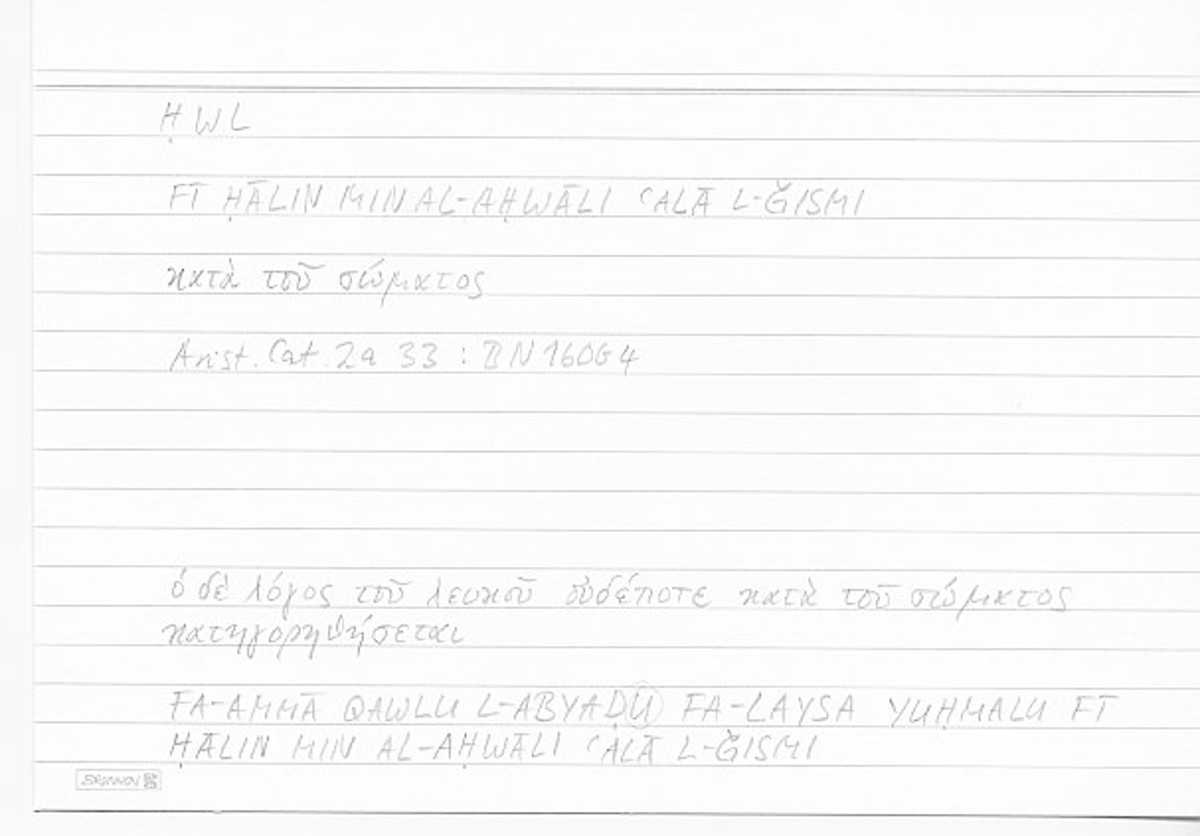 ḤWL
FĪ ḤĀLIN MIN AL-AḤWĀLI ʿALĀ L-ǦISMI
κατὰ τοῦ σώματος
Arist. Cat. 2a 33 : BN 160G4
ὁ δὲ λόγος τοῦ λευκοῦ οὐδέποτε κατὰ τοῦ σώματος
κατηγορηθήσεται
FA-AMMĀ QAWLU L-ABYAḌU FA-LAYSA YUḤMALU FĪ
ḤĀLIN MIN AL-AḤWĀLI ʿALĀ L-ǦISMI